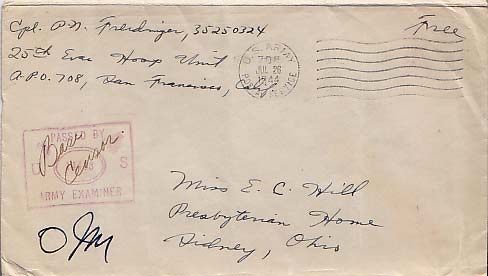 Cpl. P.N. Freidinger, 35250324
Free
25th Evac Hosp Unit
A.P.O. 708, San Francisco, Calif
U.S. ARMY
708
JUL 26
1944
POSTAL SERVICE
PASSED BY
Base
Censor
U S
ARMY EXAMINER
Miss E. C. Hill
Presbyterian Home
Sidney, Ohio